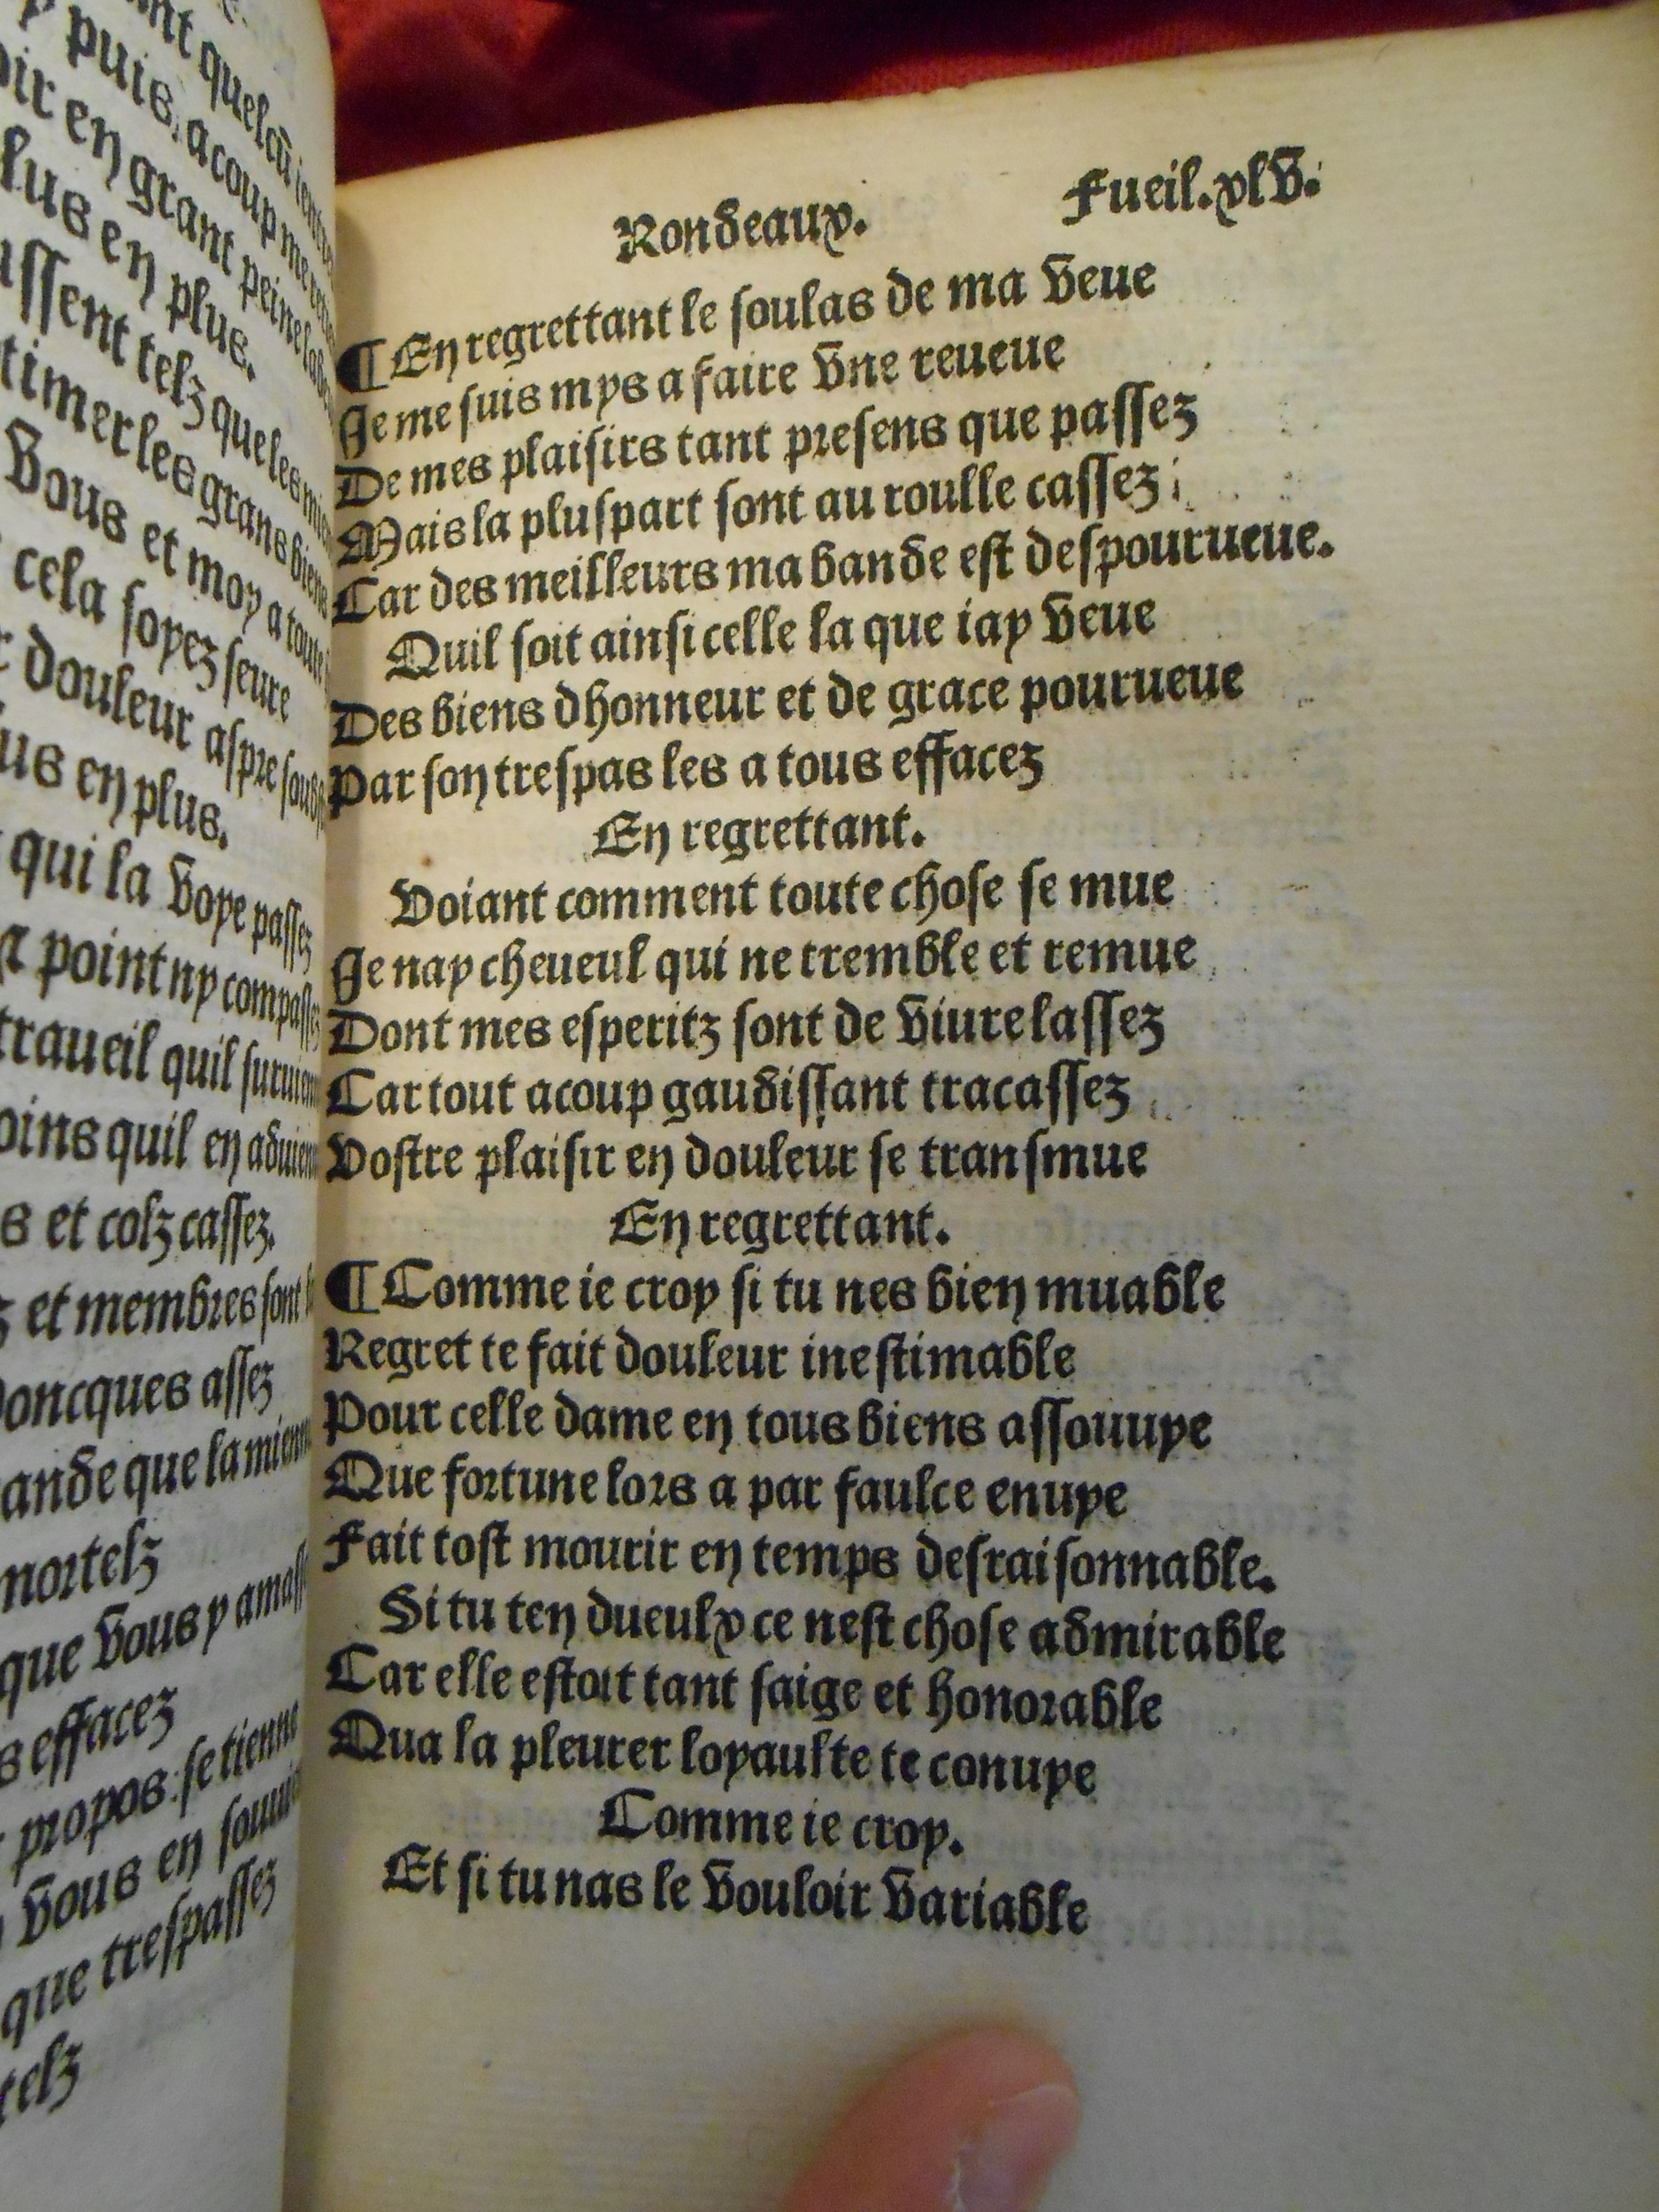 nt quelcũ
puis, acoup me
oir en grant peine
lus en plus.
ussent telz que les
timer les grans biens
Vous et moy a toute
cela soyez seure
douleur aspre
us en plus.
qui la voye passez
point ny compassez
traueil quil
oins quil en
s et colz cassez.
z et membres sont
doncques assez
ande que la mienne
mortelz
que vous y
s effacez
propos: se tienne
vous en
que trespassez
telz
Rondeaux. Fueil.xlv.
¶ En regrettant le soulas de ma veue
Je me suis mys a faire vne reueue
De mes plaisirs tant presens que passez
Mais la pluspart sont au roulle cassez
Car des meilleurs ma bande est despourueue.
Quil soit ainsi celle la que iay veue
Des biens dhonneur et de grace pourueue
Par son trespas les a tous effacez
En regrettant.
Voiant comment toute chose se mue
Je nay cheueul qui ne tremble et remue
Dont mes esperitz sont de viure lassez
Car tout acoup gaudissant tracassez
Vostre plaisir en douleur se transmue
En regrettant.
¶ Comme ie croy si tu nes bien muable
Regret te fait douleur inestimable
Pour celle dame en tous biens assouuye
Que fortune lors a par faulce enuye
Fait tost mourir en temps desraisonnable.
Si tu ten dueulx ce nest chose admirable
Car elle estoit tant saige et honorable
Qua la pleurer loyaulte te conuye
Comme ie croy.
Et si tu nas le vouloir variable